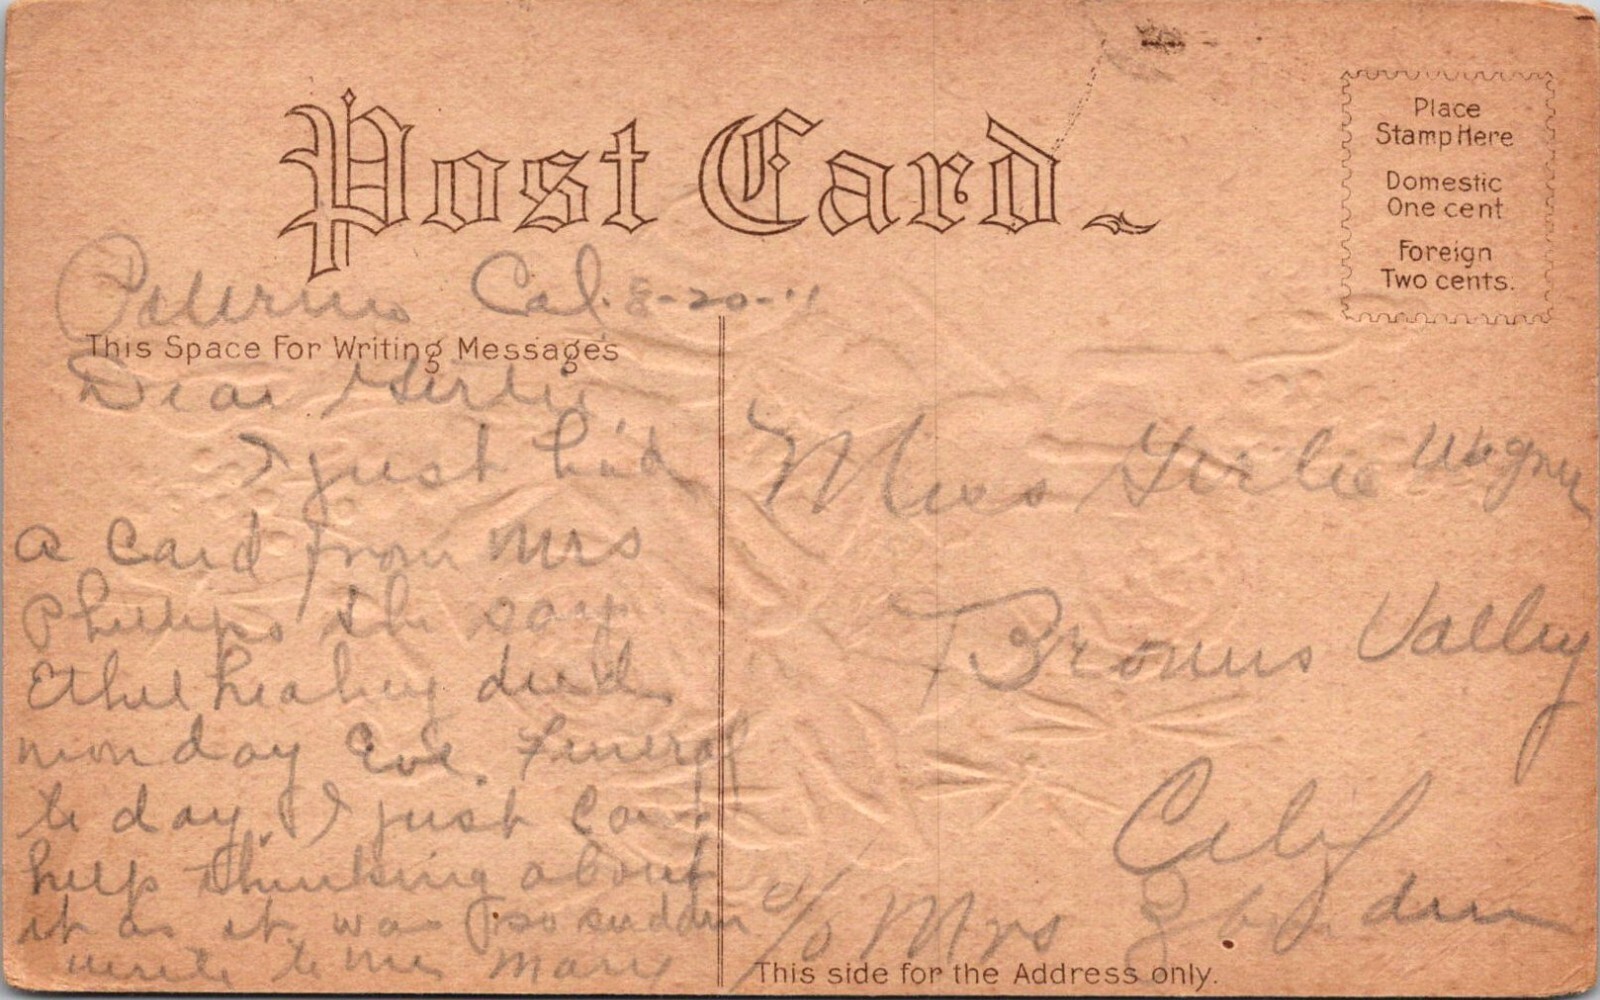 Post Card
Place
Stamp Here
Domestic
One cent
Foreign
Two cents.
Palermo Cal. 8-20-11
This Space For Writing Messages
Dear Girlie
I just had
a card from Mrs
Phillips she says
Ethel died
monday Eve. Funeral
to day. I just cant
help thinking about
it as it was so sudden
write to me Mary
Miss Girlie Wagner
Browns Valley
Calf
c/o Mrs
This side for the Address only.